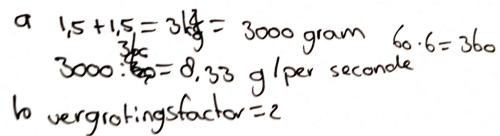 a 1,5 + 1,5 = 3kg = 3000 gram 60 · 6 = 360
3000 : 360 = 8,33 g/per seconde
b vergrotingsfactor = 2